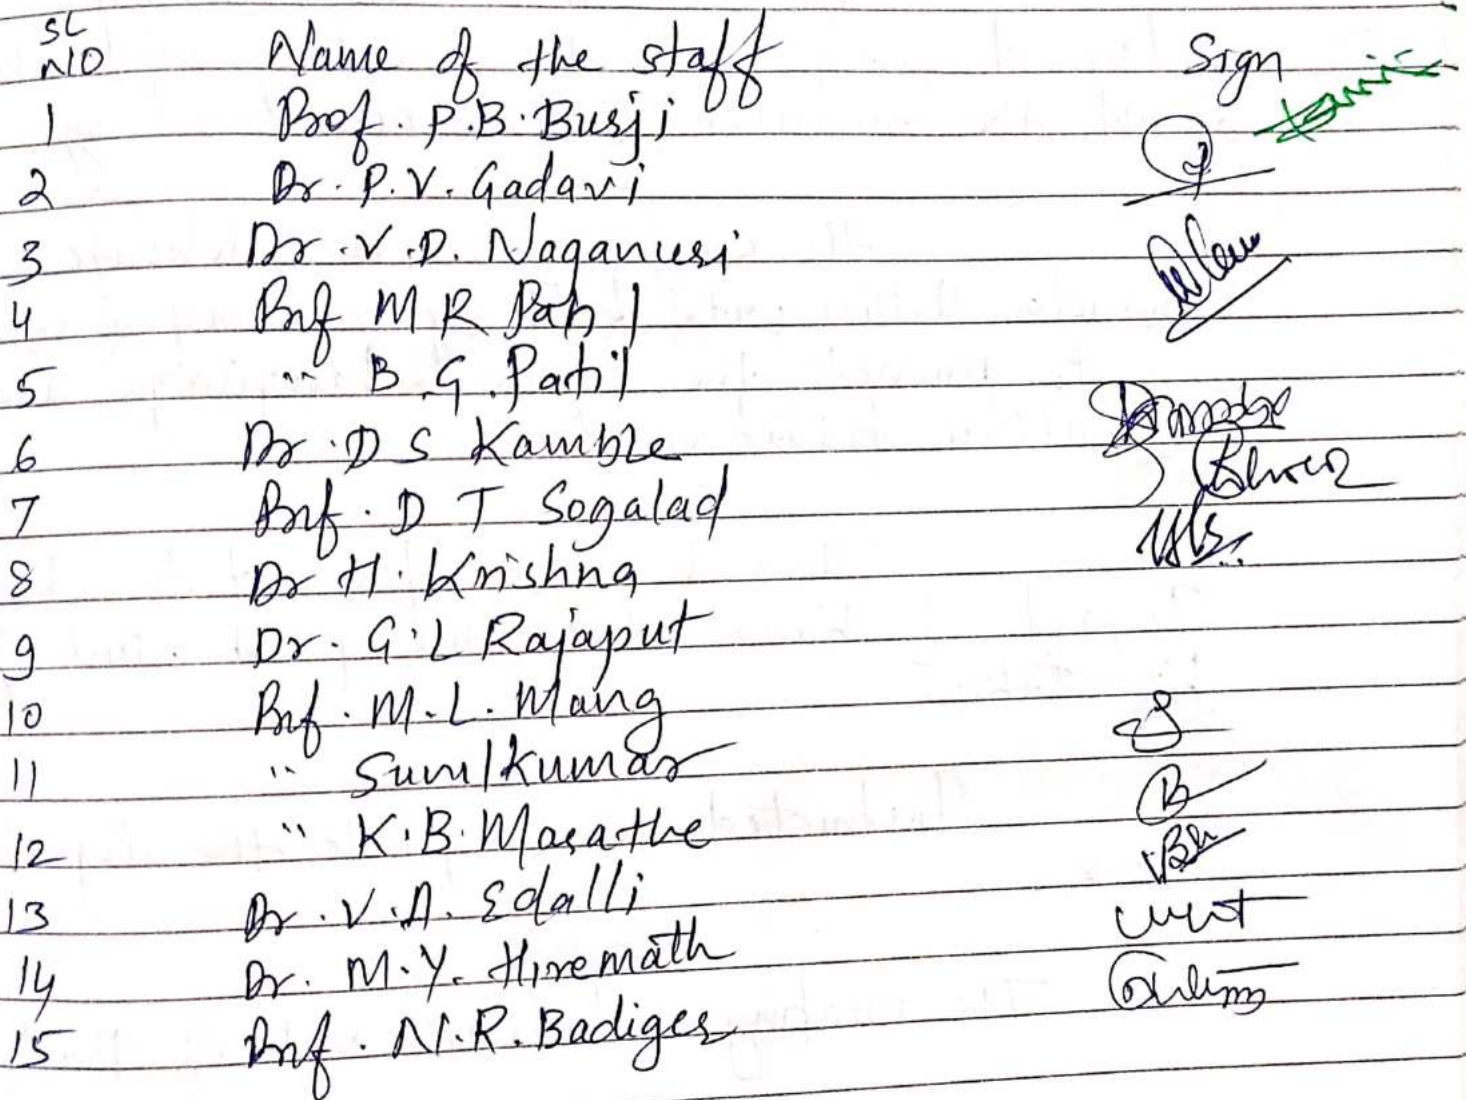 SL NO Name of the staff Sign
1 Prof. P.B. Burji
2 Dr. P.V. Gadavi
3 Dr. V.D. Naganuri
4 Prof M R Patil
5 " B.G. Patil
6 Dr. D S Kamble
7 Prof. D T Sogalad
8 Dr H. Krishna
9 Dr. G.L Rajaput
10 Prof. M.L. Mang
11 " Sunilkumar
12 " K.B. Marathe
13 Dr. V.A. Edalli
14 Dr. M.Y. Hiremath
15 Prof. N.R. Badiger